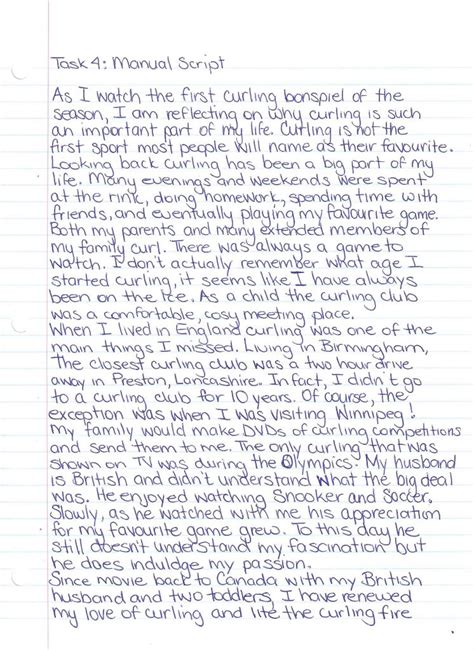 Task 4: Manual Script
As I watch the first curling bonspiel of the
season, I am reflecting on why curling is such
an important part of my life. Curling is not the
first sport most people will name as their favourite.
Looking back curling has been a big part of my
life. Many evenings and weekends were spent
at the rink, doing homework, spending time with
friends, and eventually playing my favourite game.
Both my parents and many extended members of
my family curl. There was always a game to
watch. I don't actually remember what age I
started curling, it seems like I have always
been on the ice. As a child the curling club
was a comfortable, cosy meeting place.
When I lived in England curling was one of the
main things I missed. Living in Birmingham,
the closest curling club was a two hour drive
away in Preston, Lancashire. In fact, I didn't go
to a curling club for 10 years. Of course, the
exception was when I was visiting Winnipeg!
My family would make DVDs of curling competitions
and send them to me. The only curling that was
shown on TV was during the Olympics. My husband
is British and didn't understand what the big deal
was. He enjoyed watching Snooker and Soccer.
Slowly, as he watched with me his appreciation
for my favourite game grew. To this day he
still doesn't understand my fascination but
he does induldge my passion.
Since movie back to Canada with my British
husband and two toddlers, I have renewed
my love of curling and lite the curling fire